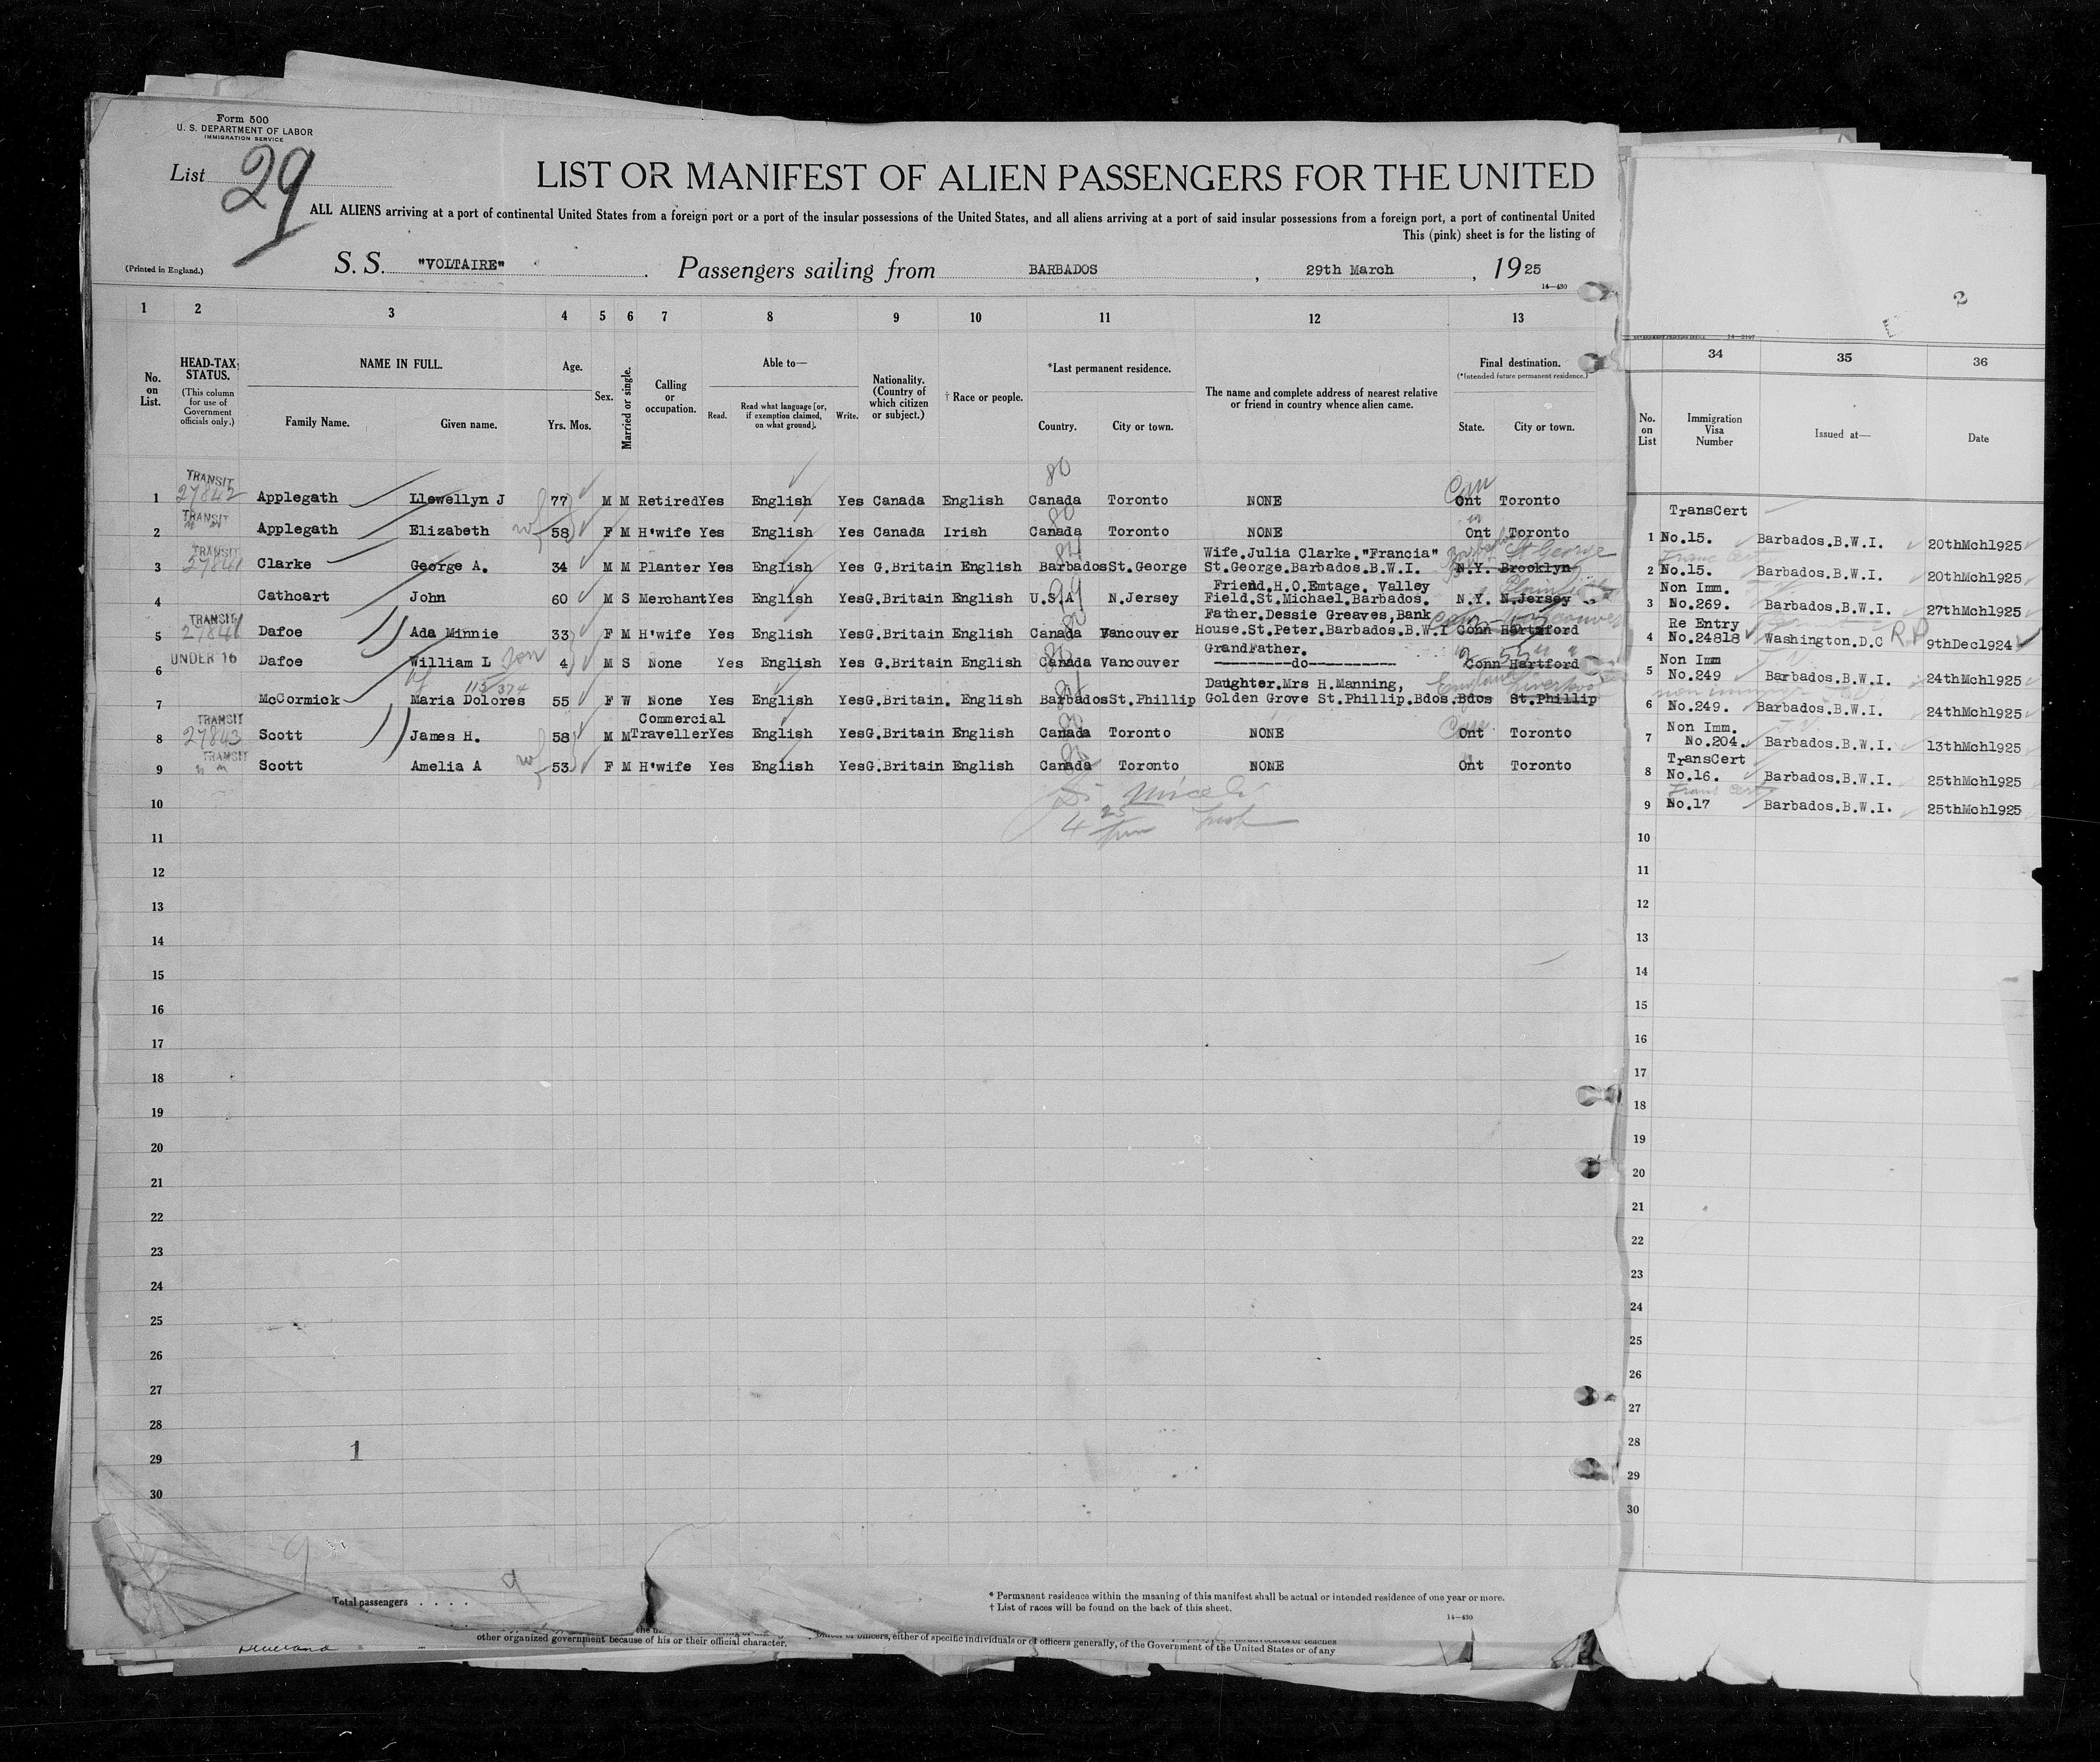 Form 500
U. S. DEPARTMENT OF LABOR
IMMIGRATION SERVICE
List 29
LIST OR MANIFEST OF ALIEN PASSENGERS FOR THE UNITED
ALL ALIENS arriving at a port of continental United States from a foreign port or a port of the insular possessions of the United States, and all aliens arriving at a port of said insular possessions from a foreign port, a port of continental United
This (pink) sheet is for the listing of
(Printed in England.)
S. S. "VOLTAIRE" . Passengers sailing from BARBADOS , 29th March , 1925
14—430
1 2 3 4 5 6 7 8 9 10 11 12 13
No. on List.
HEAD-TAX STATUS.
(This column for use of Government officials only.)
NAME IN FULL.
Family Name. Given name.
Age.
Yrs. Mos.
Sex.
Married or single.
Calling or occupation.
Able to—
Read. Read what language [or, if exemption claimed, on what ground]. Write.
Nationality. (Country of which citizen or subject.)
† Race or people.
*Last permanent residence.
Country. City or town.
The name and complete address of nearest relative or friend in country whence alien came.
Final destination.
(*Intended future permanent residence.)
State. City or town.
80
1 TRANSIT 27842 Applegath Llewellyn J 77 M M Retired Yes English Yes Canada English Canada Toronto NONE Can Ont Toronto
80
2 TRANSIT Applegath Elizabeth wf 58 F M H'wife Yes English Yes Canada Irish Canada Toronto NONE Ont Toronto
84
3 TRANSIT 27841 Clarke George A. 34 M M Planter Yes English Yes G.Britain English Barbados St.George Wife.Julia Clarke."Francia"
St.George.Barbados.B.W.I. N.Y. Brooklyn St George
4 Cathcart John 60 M S Merchant Yes English Yes G.Britain English U.S.A N.Jersey Friend.H.O.Emtage. Valley
Field.St.Michael.Barbados. N.Y. N.Jersey
5 TRANSIT 27841 Dafoe Ada Minnie 33 F M H'wife Yes English Yes G.Britain English Canada Vancouver Father.Dessie Greaves,Bank
House.St.Peter.Barbados.B.W.I Conn Hartford
6 UNDER 16 Dafoe William L son 4 M S None Yes English Yes G.Britain English Canada Vancouver GrandFather.
----------do---------- Conn Hartford
7 McCormick Maria Dolores 55 F W None Yes English Yes G.Britain. English Barbados St.Phillip Daughter.Mrs H.Manning,
Golden Grove St.Phillip.Bdos. Bdos St.Phillip England Liverpool
8 TRANSIT 27843 Scott James H. 58 M M Commercial Traveller Yes English Yes G.Britain English Canada Toronto NONE Can Ont Toronto
9 TRANSIT Scott Amelia A wf 53 F M H'wife Yes English Yes G.Britain English Canada Toronto NONE Ont Toronto
10
11
12
13
14
15
16
17
18
19
20
21
22
23
24
25
26
27
28
29 1
30
9
Total passengers . . . . 9
* Permanent residence within the meaning of this manifest shall be actual or intended residence of one year or more.
† List of races will be found on the back of this sheet.
14—430
other organized government because of his or their official character.
officers, either of specific individuals or of officers generally, of the Government of the United States or of any
2
34 35 36
No. on List
Immigration Visa Number
Issued at—
Date
TransCert
1 No.15. Barbados.B.W.I. 20thMch1925
Trans Cert
2 No.15. Barbados.B.W.I. 20thMch1925
Non Imm.
3 No.269. Barbados.B.W.I. 27thMch1925
Re Entry
4 No.24818 Washington.D.C R.P 9thDec1924
Non Imm
5 No.249 Barbados.B.W.I. 24thMch1925
6 No.249. Barbados.B.W.I. 24thMch1925
Non Imm.
7 No.204. Barbados.B.W.I. 13thMch1925
TransCert
8 No.16. Barbados.B.W.I. 25thMch1925
Trans Cert
9 No.17 Barbados.B.W.I. 25thMch1925
10
11
12
13
14
15
16
17
18
19
20
21
22
23
24
25
26
27
28
29
30